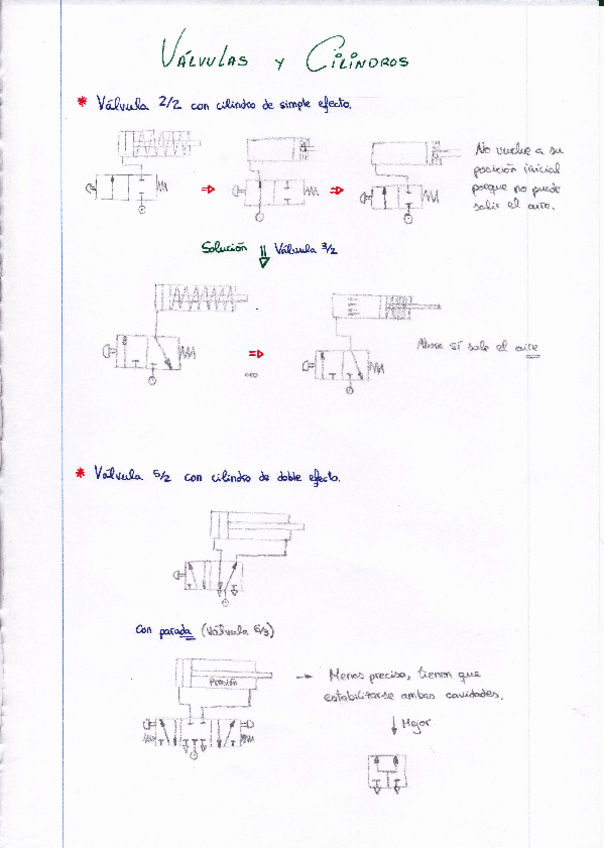 VÁLVULAS Y CILINDROS
* Válvula 2/2 con cilindro de simple efecto.
No vuelve a su
posición inicial
porque no puede
salir el aire.
Solución Válvula 3/2
Ahora sí sale el aire
* Válvula 5/2 con cilindro de doble efecto.
Con parada (Válvula 5/3)
Presión
Menos preciso, tienen que
estabilizarse ambas cavidades.
Mejor